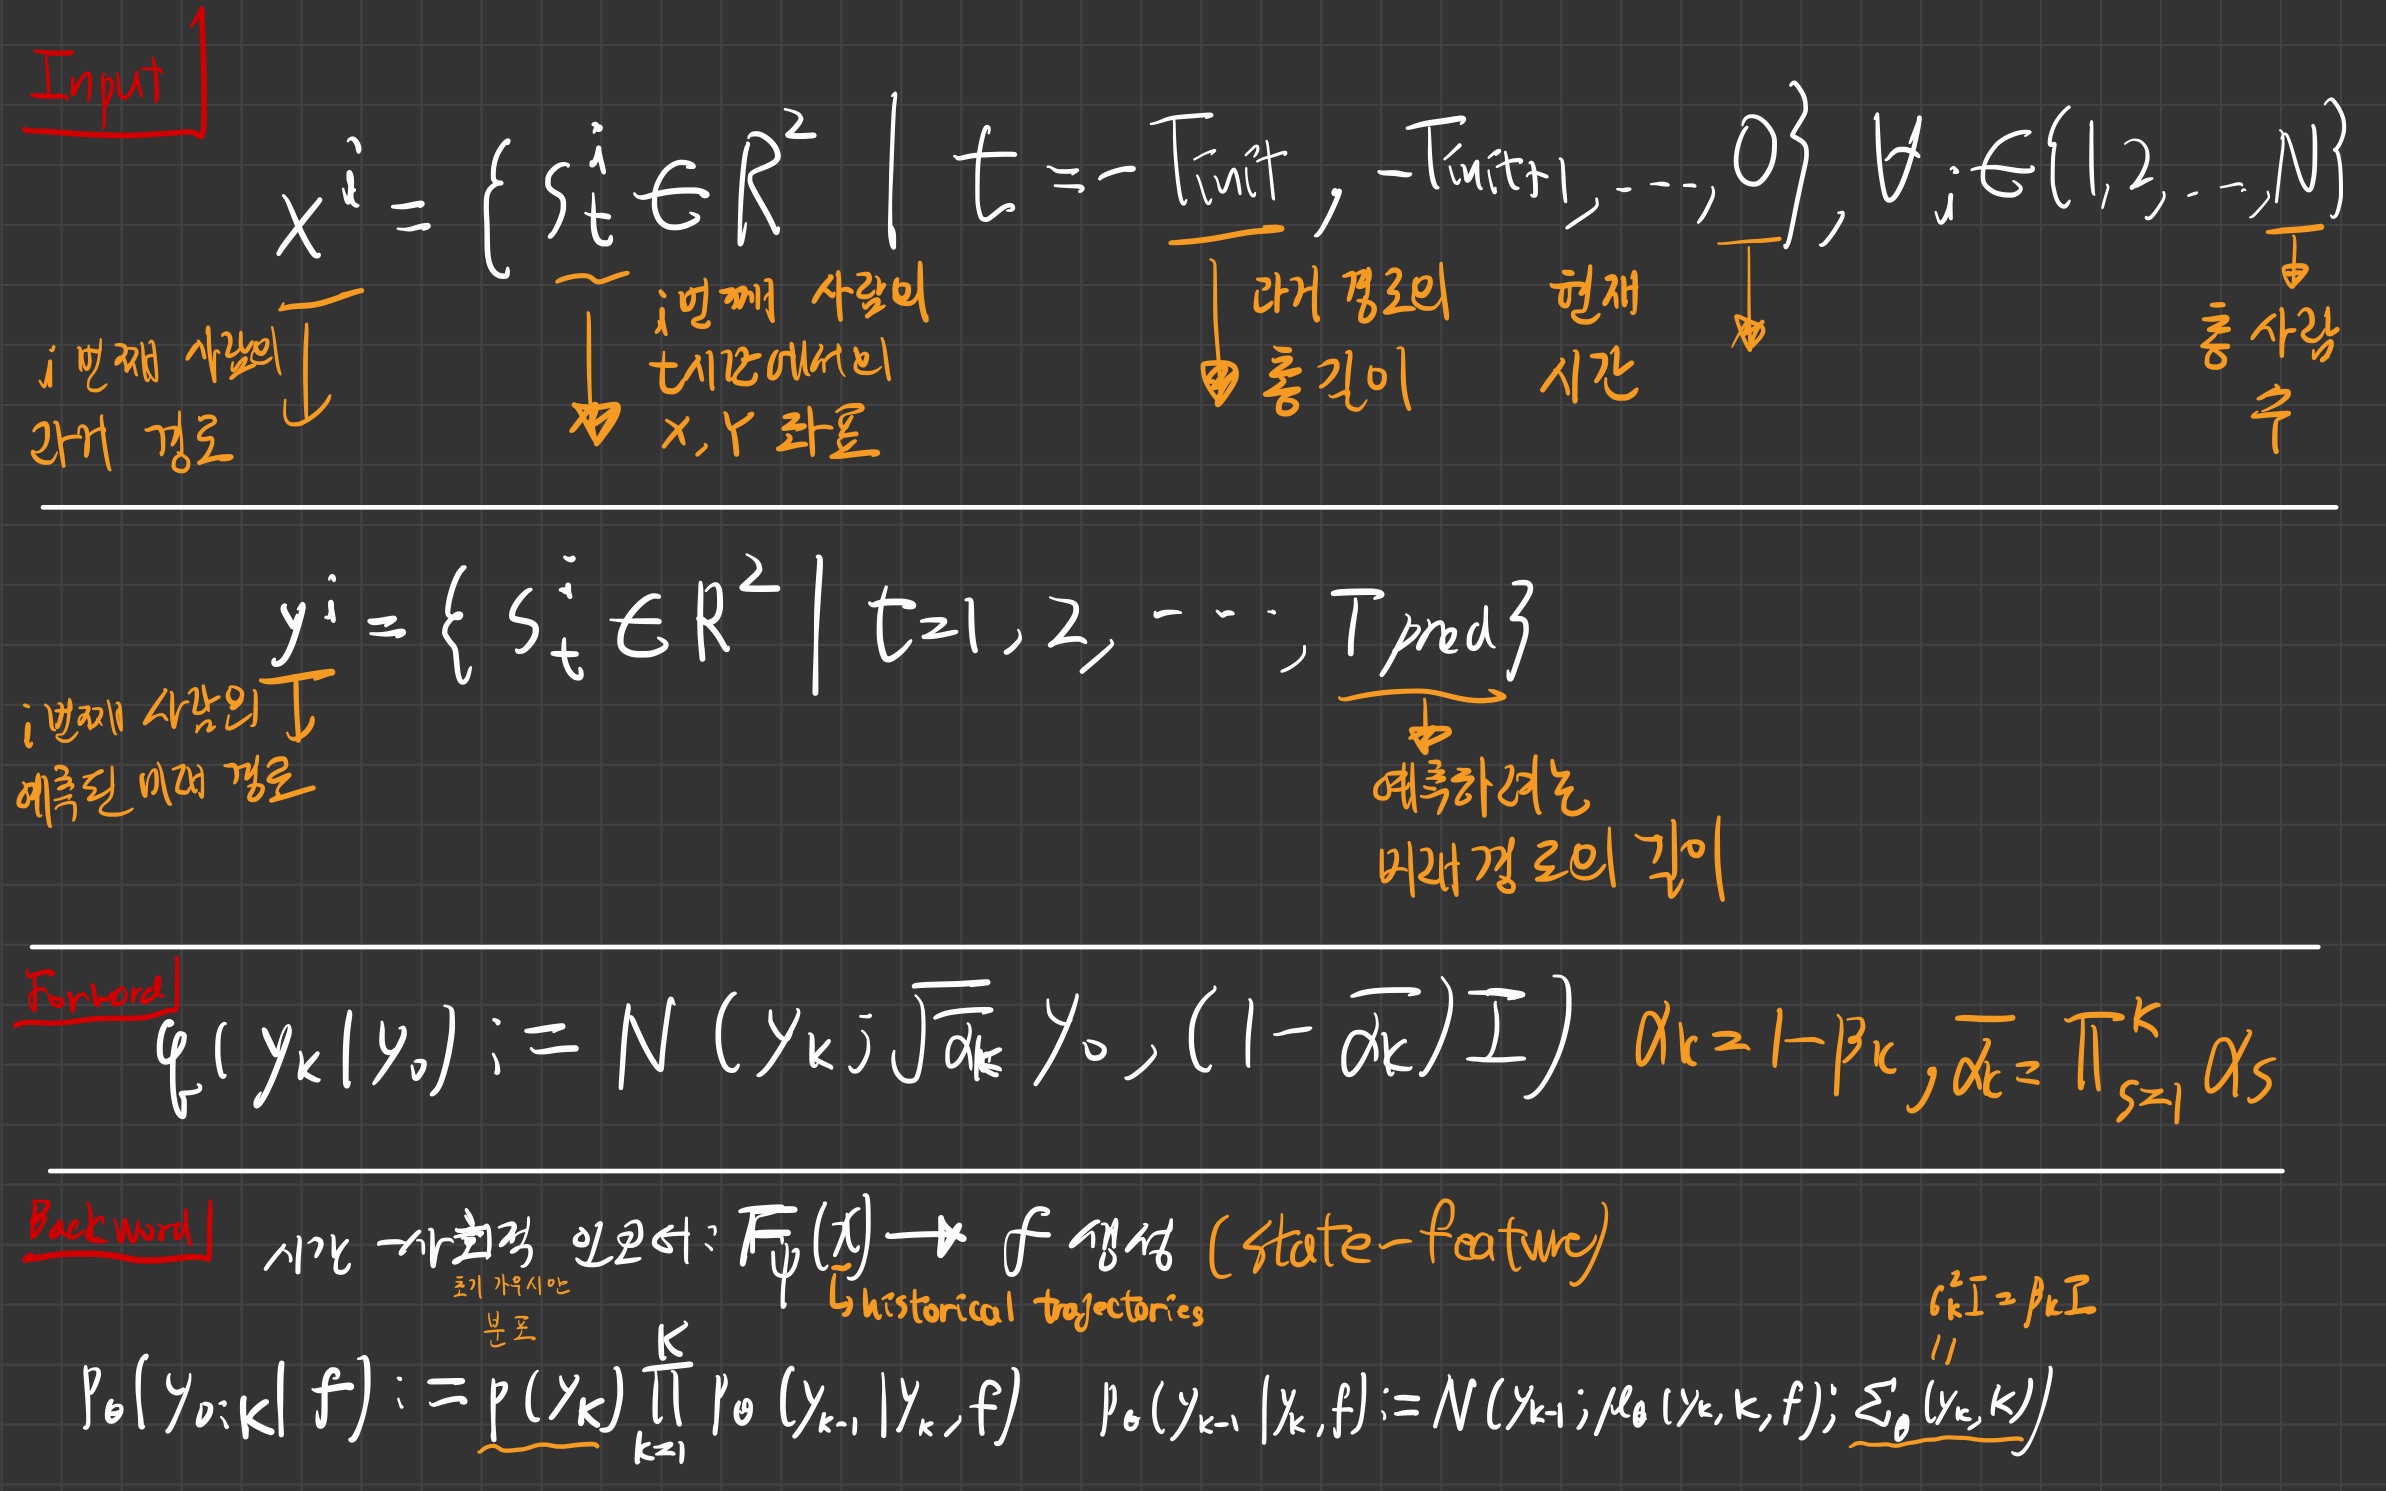 Input
x^i = { S_t^i ∈ R^2 | t = -T_init, -T_init+1, ..., 0 }, ∀_i ∈ {1, 2, ..., N}
i번째 사람의
과거 경로
i번째 사람의
t시간에서의
x, Y 좌표
과거 경로의
총 길이
현재
시간
총 사람
수
y^i = { S_t^i ∈ R^2 | t=1, 2, ..., T_pred }
i번째 사람의
예측된 미래 경로
예측하려는
미래 경로의 길이
Forword
q(y_k|y_0) := N(y_k; √ᾱ_k y_0, (1-ᾱ_k)I) α_k = 1-β_k, ᾱ_k = Π_{s=1}^K α_s
Backword
시간-사회적 인코더: F_ψ(x) → f 생성 (state-feature)
초기 가우시안
분포
↳ historical trajectories
σ_k^2 I = β_k I
p_θ(y_{0:K}|f) := p(y_K) Π_{k=1}^K p_θ(y_{k-1}|y_k, f) p_θ(y_{k-1}|y_k, f) := N(y_{k-1}; μ_θ(y_k, k, f); Σ_θ(y_k, k))